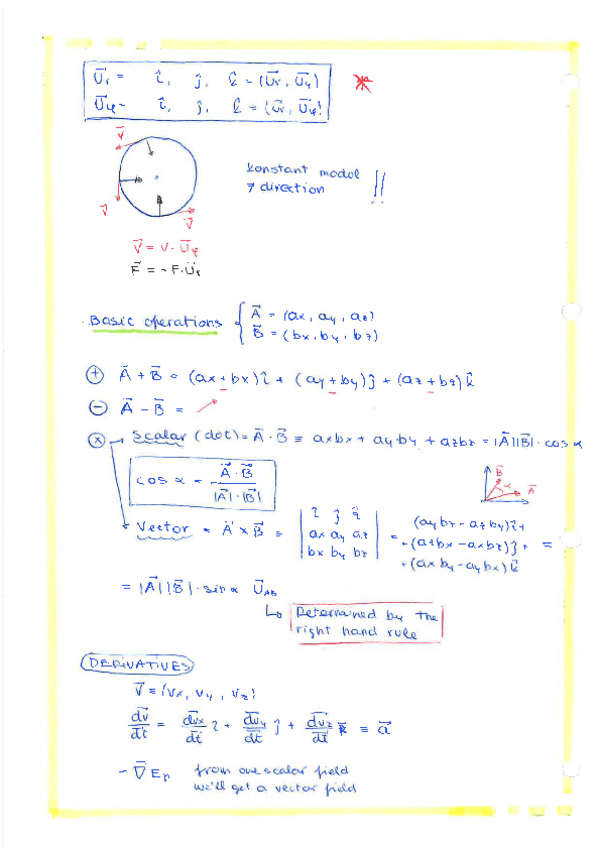 U⃗r = î, ĵ, k̂ = (U⃗r, U⃗φ)
U⃗φ = î, ĵ, k̂ = (U⃗r, U⃗φ)
*
V⃗
V⃗
V⃗
konstant modol
≠ direction !!
V⃗ = V · U⃗φ
F⃗ = - F · U⃗r
· Basic operations { A⃗ = (ax, ay, az)
B⃗ = (bx, by, bz)
⊕ A⃗ + B⃗ = (ax + bx) î + (ay + by) ĵ + (az + bz) k̂
⊖ A⃗ - B⃗ =
ⓧ → Scalar (dot) = A⃗ · B⃗ ≡ axbx + ay·by + azbz = |A⃗||B⃗| · cos α
cos α = A⃗ · B⃗ / |A⃗| · |B⃗|
B⃗ α A⃗
Vector = A⃗ × B⃗ = | î ĵ k̂ | = (ay bz - az by) î +
| ax ay az | - (azbx - axbz) ĵ + =
| bx by bz | + (ax by - ay bx) k̂
= |A⃗||B⃗| · sin α U⃗AB
↳ Determained by the
right hand rule
DERIVATIVES
V⃗ = (Vx, Vy, Vz)
dv⃗/dt = dvx/dt î + dvy/dt ĵ + dvz/dt k⃗ ≡ a⃗
- ∇⃗ Ep from one scalar field
we'll get a vector field